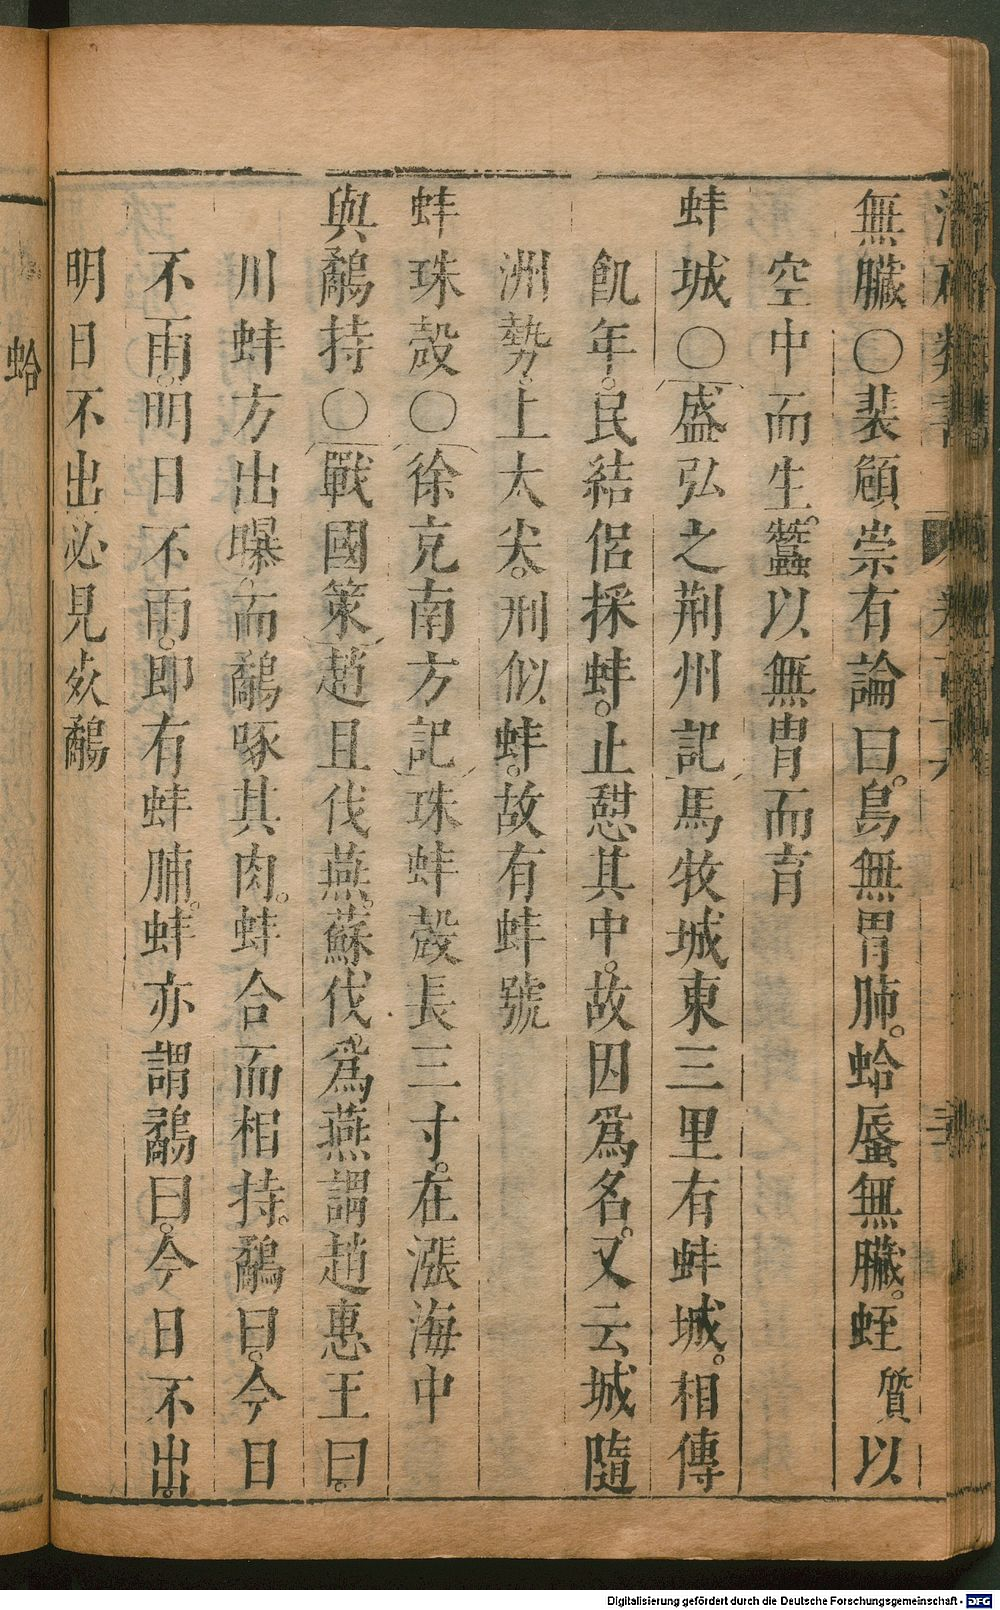 無臟〇裴頠崇有論曰鳥無胃肺。蛤蜃無臟。蛭質以
空中而生。蠶以無胃而育
蚌城〇盛弘之荆州記馬牧城東三里有蚌城。相傳
飢年。民結侶採蚌。止憇其中。故因爲名。又云城隨
洲勢。上大尖。刑似蚌。故有蚌號
蚌珠殼〇徐克南方記珠蚌殼長三寸。在漲海中
與鷸持〇戰國策趙且伐燕。蘇伐。爲燕謂趙惠王曰。
川蚌方出曝。而鷸啄其肉。蚌合而相持。鷸曰。今日
不雨。明日不雨。即有蚌脯。蚌亦謂鷸曰。今日不出。
明日不出必見死鷸
蛤
Digitalisierung gefördert durch die Deutsche Forschungsgemeinschaft - DFG